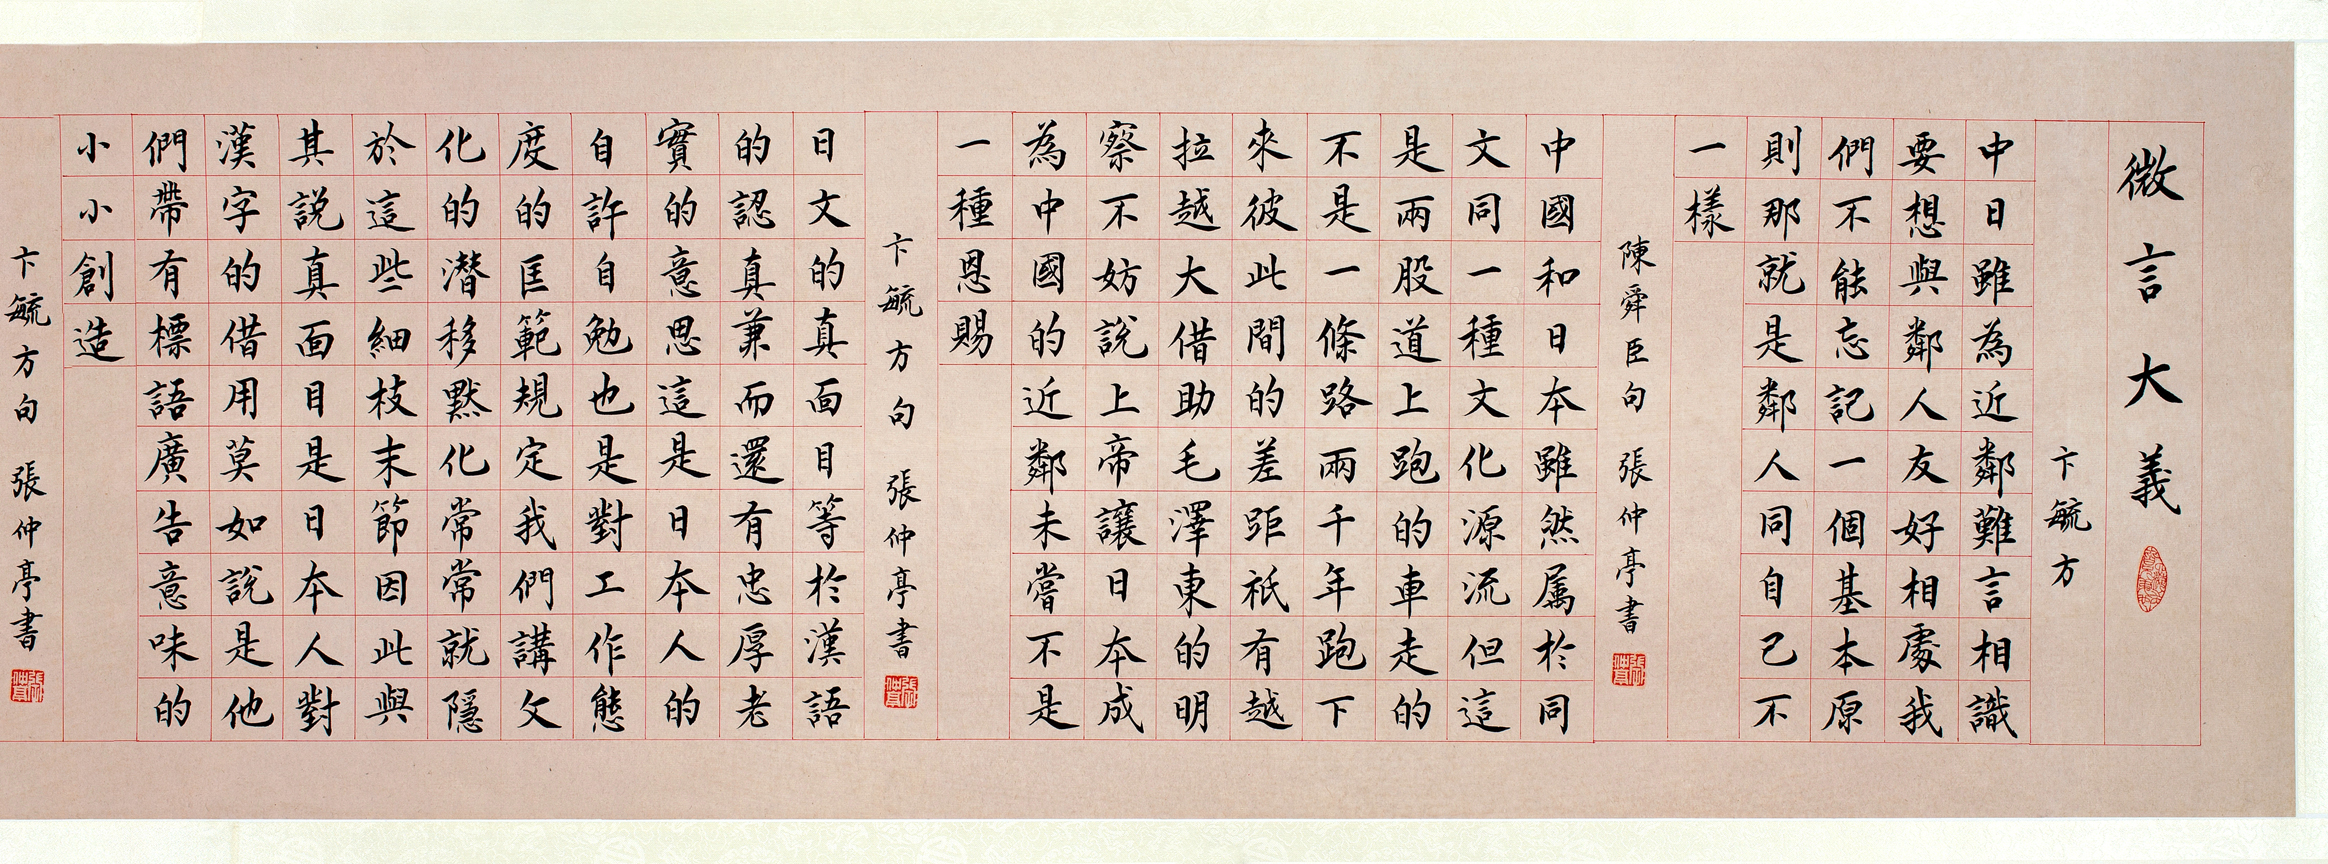 微言大義
卞毓方
中日雖為近鄰難言相識
要想與鄰人友好相處我
們不能忘記一個基本原
則那就是鄰人同自己不
一樣
陳舜臣句 張仲亭書
中國和日本雖然属於同
文同一種文化源流但這
是兩股道上跑的車走的
不是一條路兩千年跑下
來彼此間的差距衹有越
拉越大借助毛澤東的明
察不妨説上帝讓日本成
為中國的近鄰未嘗不是
一種恩賜
卞毓方句 張仲亭書
日文的真面目等於漢語
的認真兼而還有忠厚老
實的意思這是日本人的
自許自勉也是對工作態
度的匡範規定我們講文
化的潜移默化常常就隱
於這些細枝末節因此與
其説真面目是日本人對
漢字的借用莫如説是他
們帶有標語廣告意味的
小小創造
卞毓方句 張仲亭書